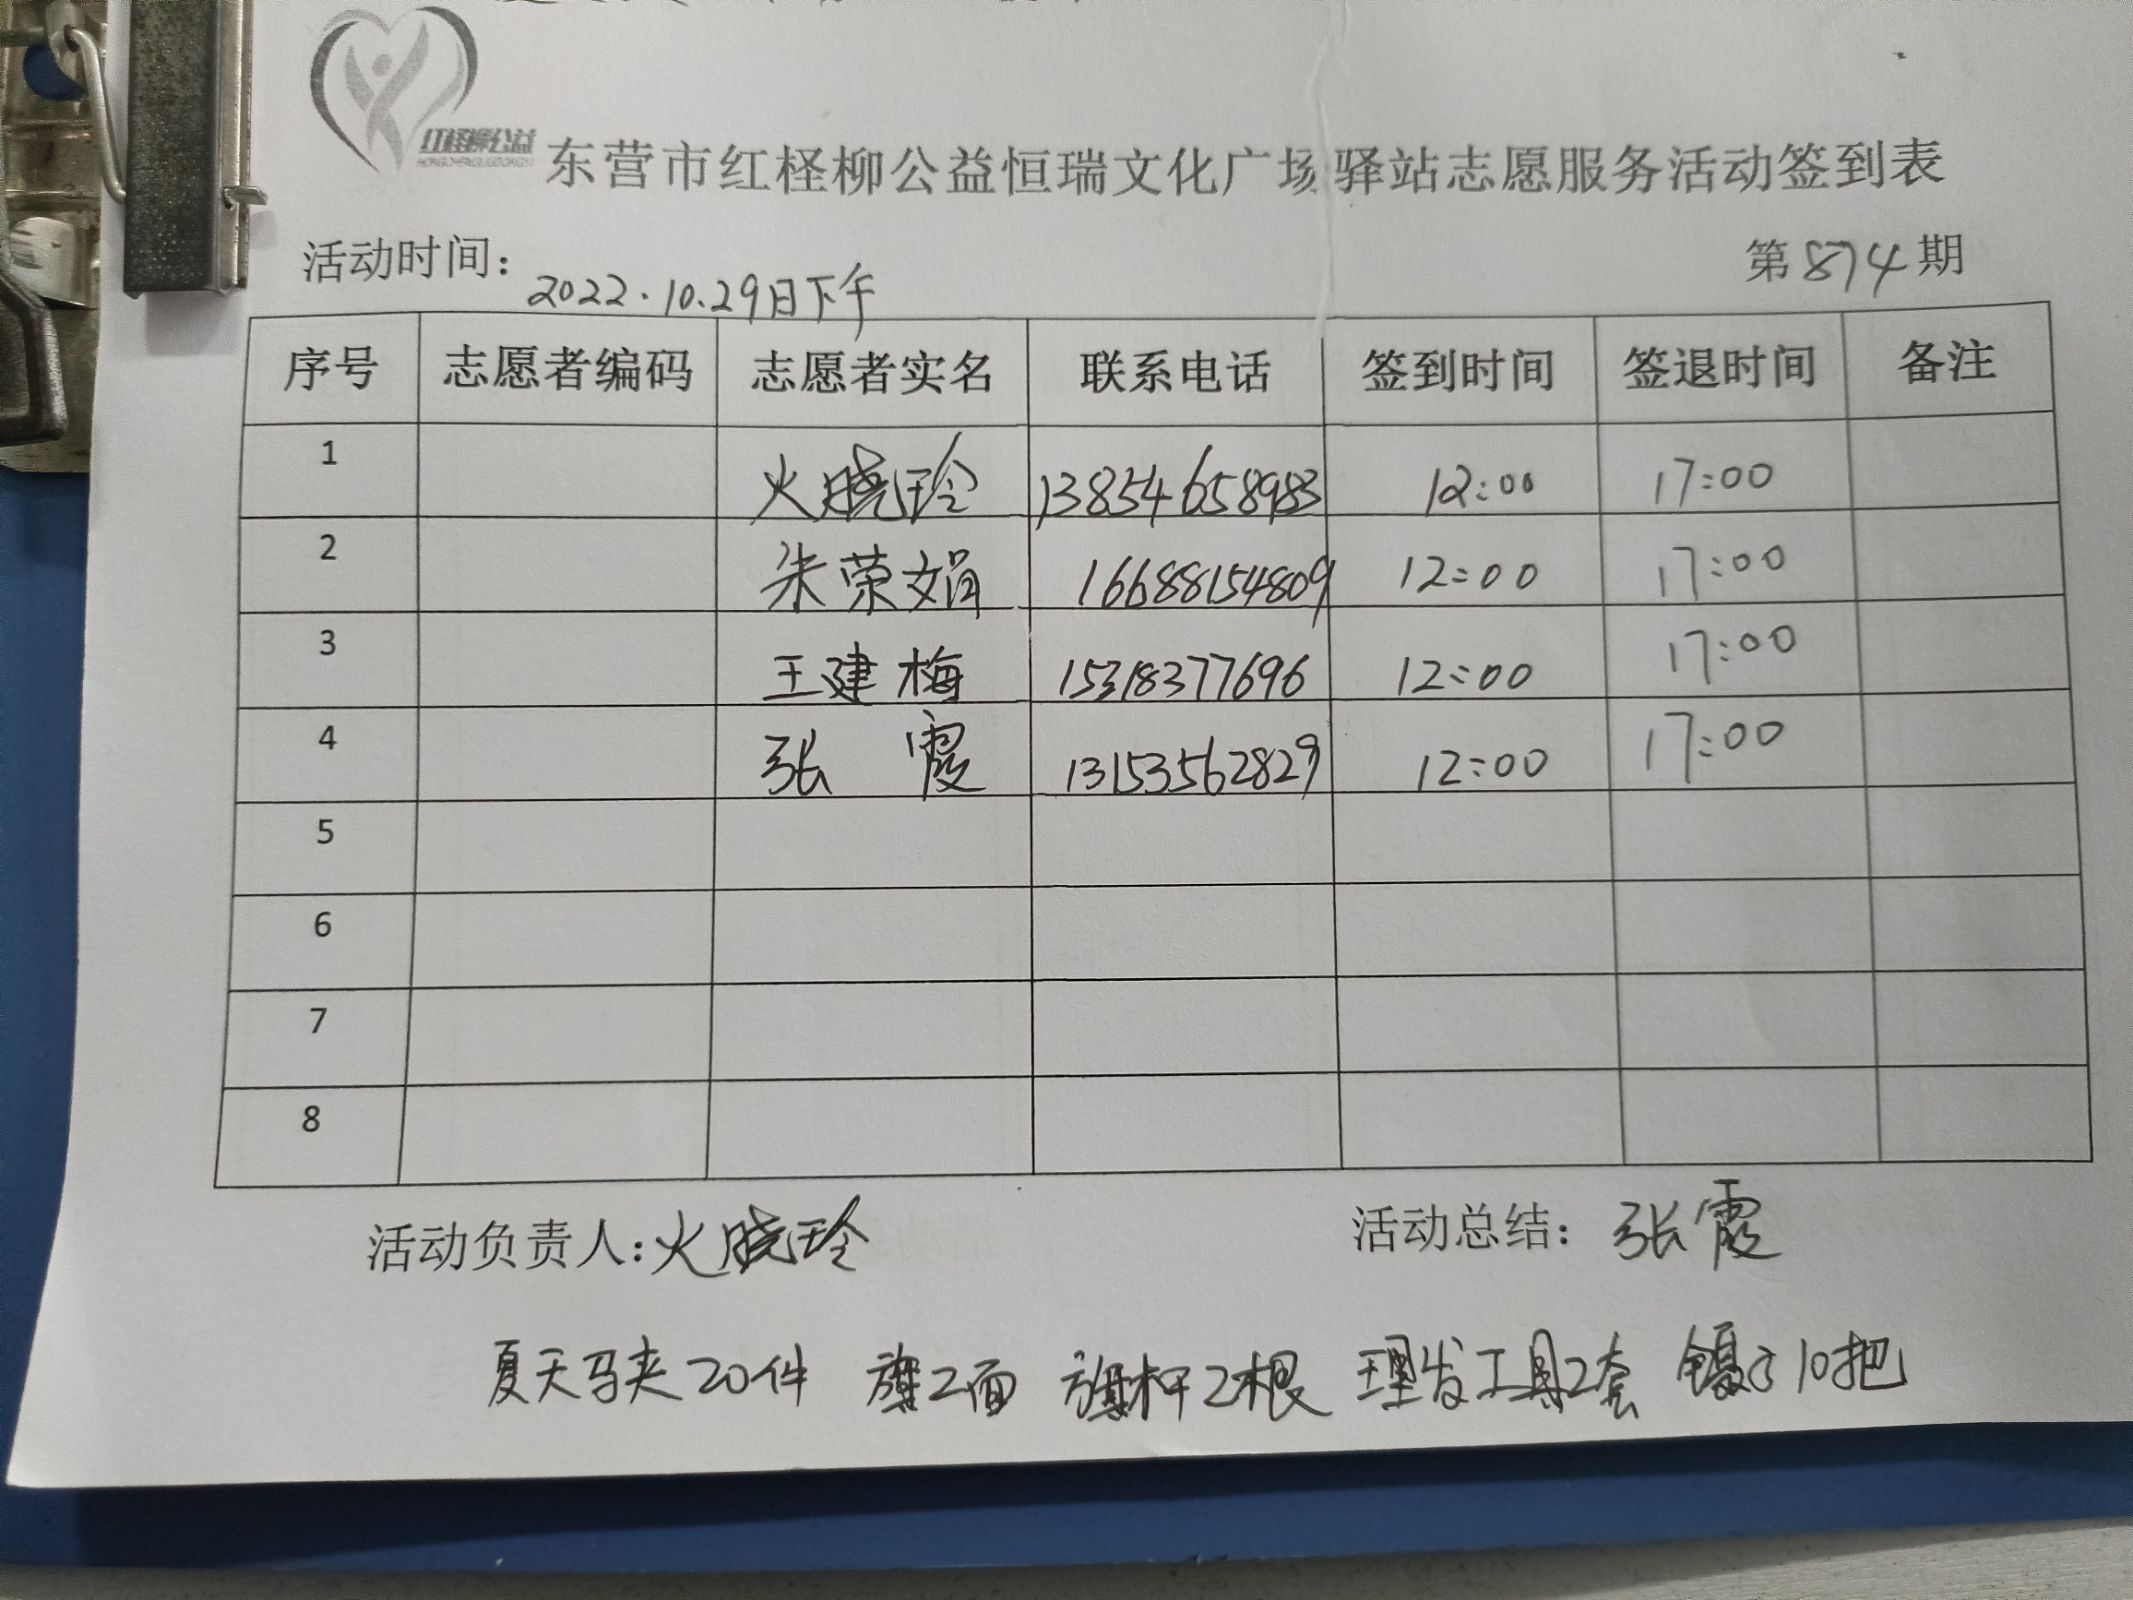 红柽柳公益
东营市红柽柳公益恒瑞文化广场驿站志愿服务活动签到表
活动时间: 2022.10.29日下午 第874期
序号 志愿者编码 志愿者实名 联系电话 签到时间 签退时间 备注
1 火晓玲 13854658983 12:00 17:00
2 朱荣娟 16688154809 12:00 17:00
3 王建梅 15318377696 12:00 17:00
4 张霞 13153562829 12:00 17:00
5
6
7
8
活动负责人:火晓玲 活动总结: 张霞
夏天马夹20件 旗2面 旗杆2根 理发工具2套 镊子10把